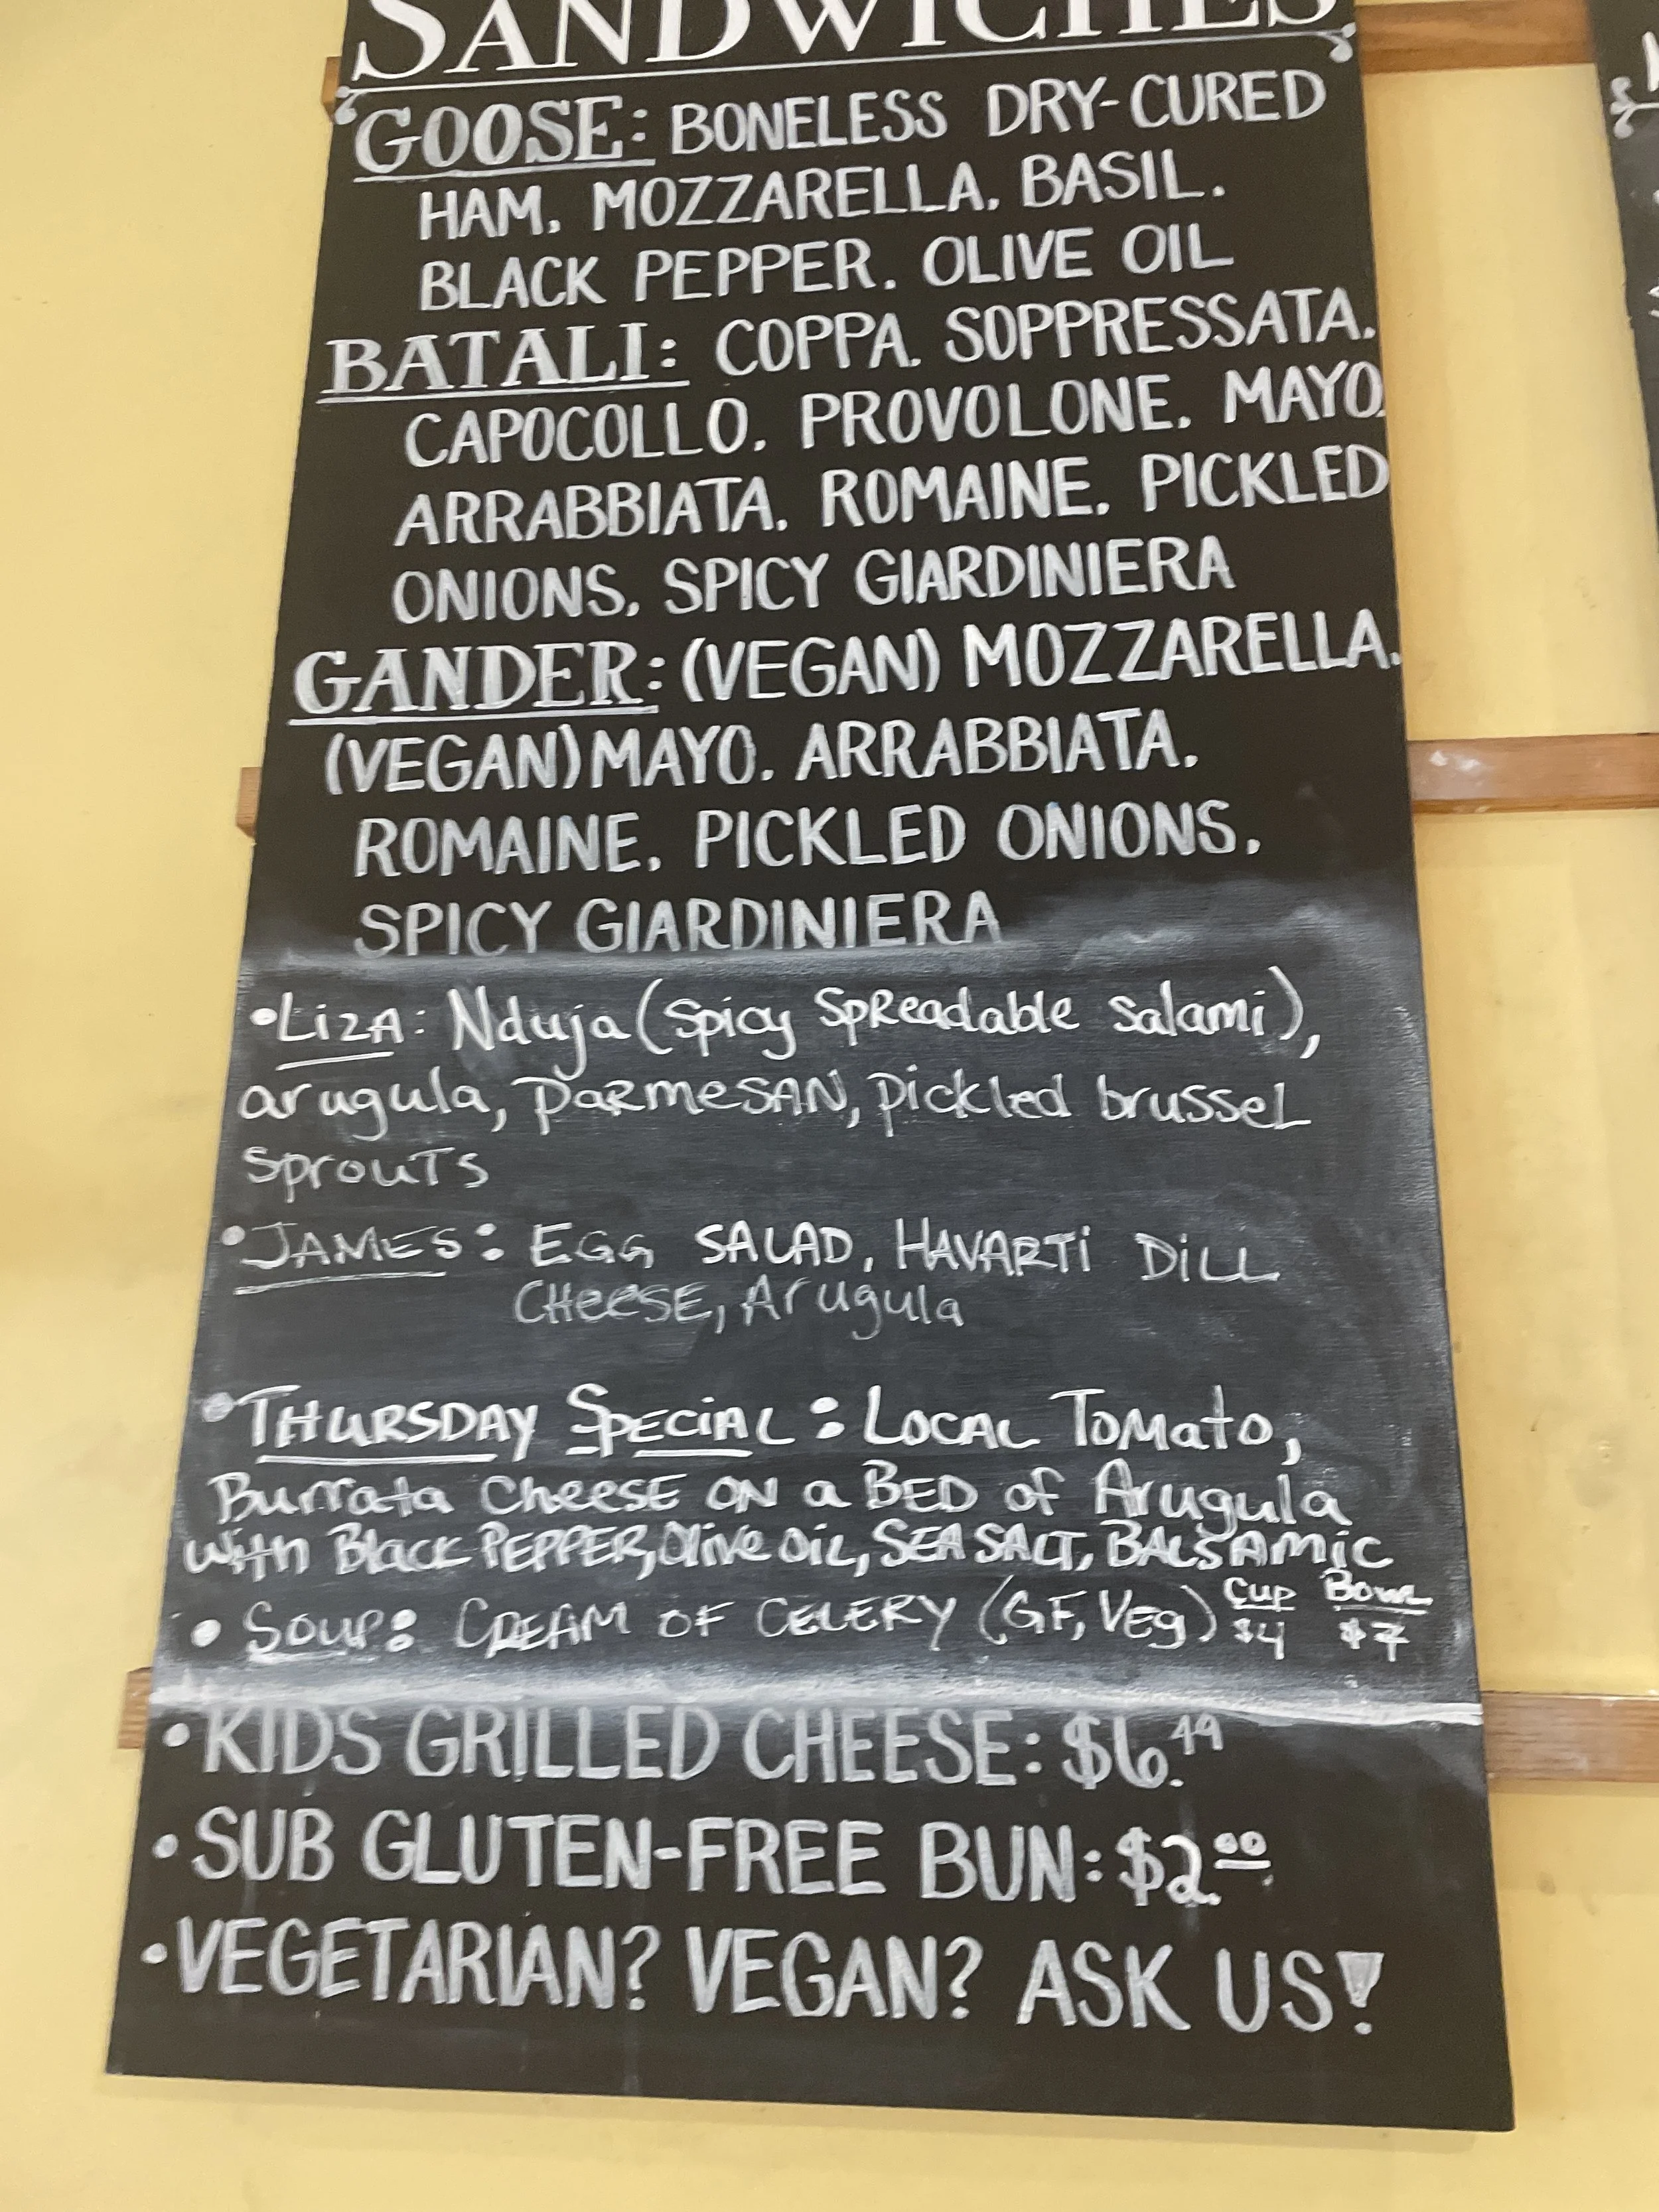 SANDWICHES
GOOSE: BONELESS DRY-CURED
HAM. MOZZARELLA. BASIL.
BLACK PEPPER. OLIVE OIL
BATALI: COPPA. SOPPRESSATA.
CAPOCOLLO. PROVOLONE. MAYO.
ARRABBIATA. ROMAINE. PICKLED
ONIONS. SPICY GIARDINIERA
GANDER: (VEGAN) MOZZARELLA.
(VEGAN) MAYO. ARRABBIATA.
ROMAINE. PICKLED ONIONS.
SPICY GIARDINIERA
•LiZA: Nduja (Spicy SpReadable Salami),
arugula, PaRmeSAN, pickled brusseL
SprouTs
•JAMES: EGG SALAD, HAVARTi DiLL
CHeeSE, Arugula
•THURSDAY SPECiAL: LOCAL ToMato,
Burrata CheeSE ON a BED of Arugula
With Black PEPPER, Olive OiL, SEA SALT, BALSAMiC
• SOUP: CREAM OF CELERY (GF, Veg) Cup Bowl
$4 $7
•KIDS GRILLED CHEESE: $6.49
•SUB GLUTEN-FREE BUN: $2.00
•VEGETARIAN? VEGAN? ASK US!